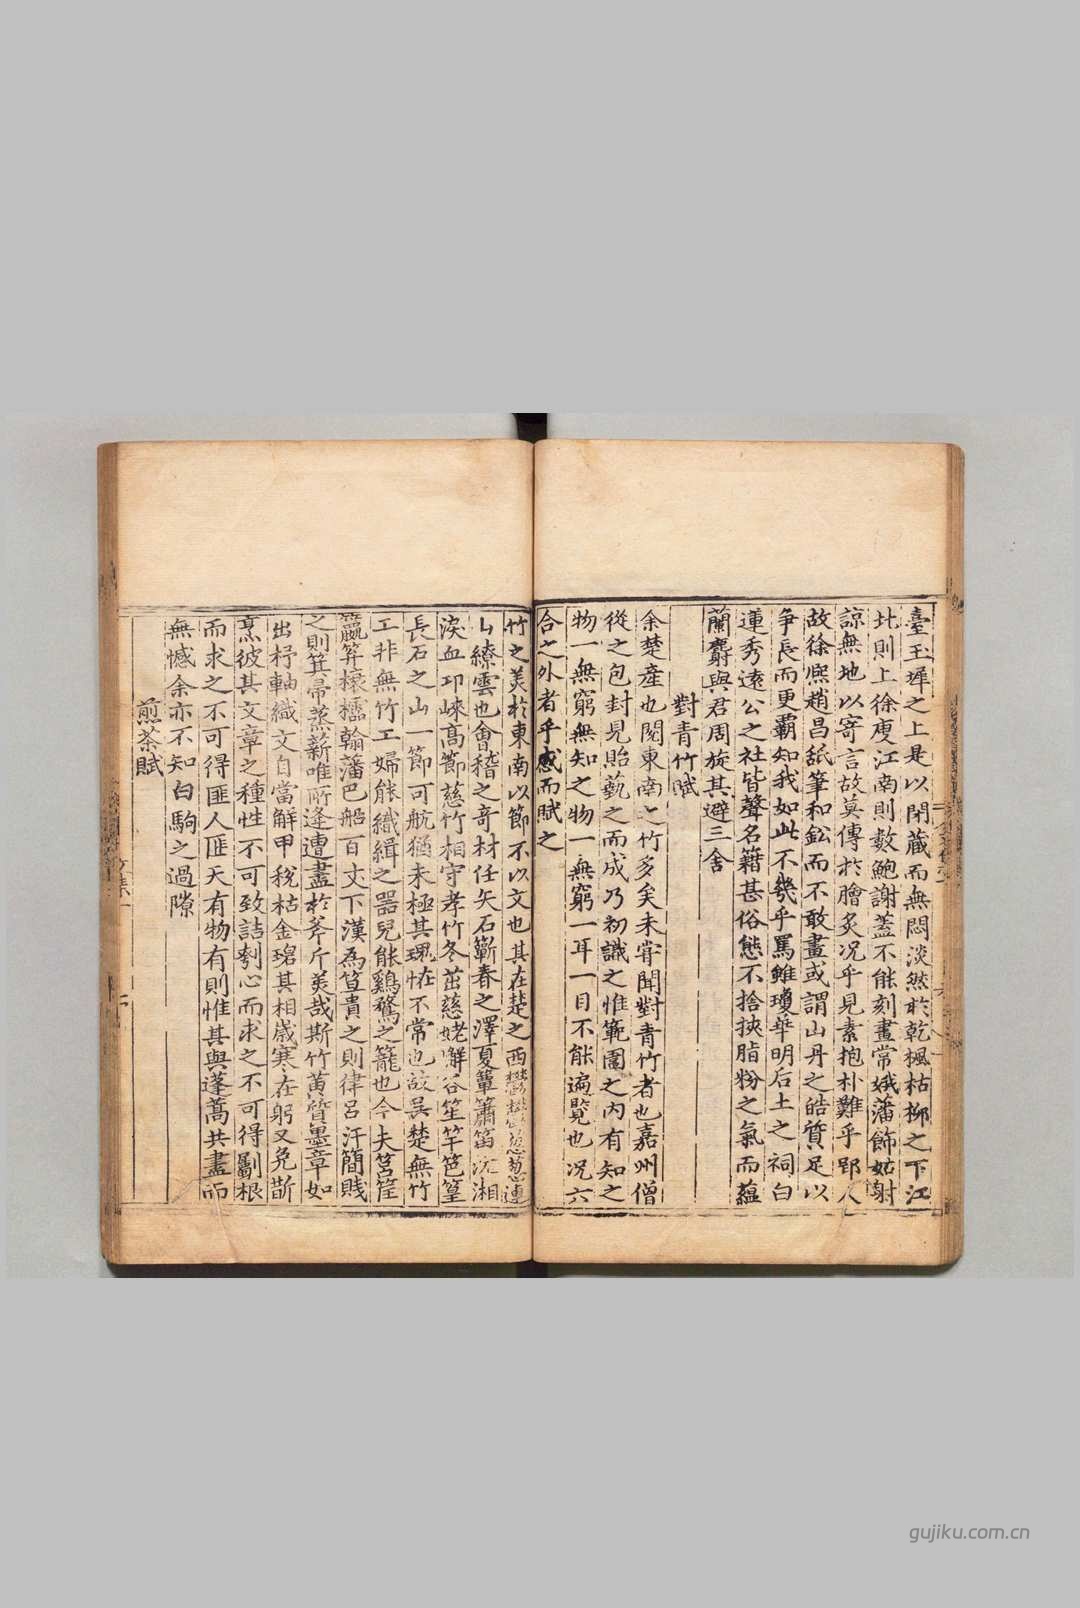 臺玉墀之上是以閉藏而無悶淡然於乾楓枯柳之下江
北則上徐庾江南則數鮑謝蓋不能刻畫嫦娥藩飾姑射
諒無地以寄言故莫傳於膾炙况乎見素抱朴難乎郢人
故徐熈趙昌舐筆和鈆而不敢畫或謂山丹之皓質足以
争長而更霸知我如此不幾乎罵雖瓊華明后土之祠白
蓮秀遠公之社皆聲名籍甚俗態不捨挾脂粉之氣而藴
蘭麝與君周旋其避三舍
對青竹賦
余楚產也閱東南之竹多矣未甞聞對青竹者也嘉州僧
從之包封見貽藝之而成乃初識之惟範圍之内有知之
物一無窮無知之物一無窮一耳一目不能遍覽也况六
合之外者乎感而賦之
竹之美於東南以節不以文也其在楚之西 葱連
山繚雲也會稽之竒材任矢石蘄春之澤夏簟簫笛沅湘
淚血卭崍髙節慈竹相守孝竹冬茁慈姥嶰谷笙竽笆篁
長石之山一節可航猶未極其瓌恠不常也故吳楚無竹
工非無竹工婦能織緝之器兒能鷄鶩之籠也今夫筥筐
籯筭 翰藩巴船百丈下漢為笪貴之則律呂汗簡賤
之則箕帚蒸薪唯所逢遭盡於斧斤美哉斯竹黃質墨章如
出杼軸織文自當解甲稅枯金珺其相嵗寒在躬又免斮
烹彼其文章之種性不可致詰刳心而求之不可得劚根
而求之不可得匪人匪天有物有則惟其與蓬蒿共盡而
無憾余亦不知白駒之過隙
煎茶賦
gujiku.com.cn